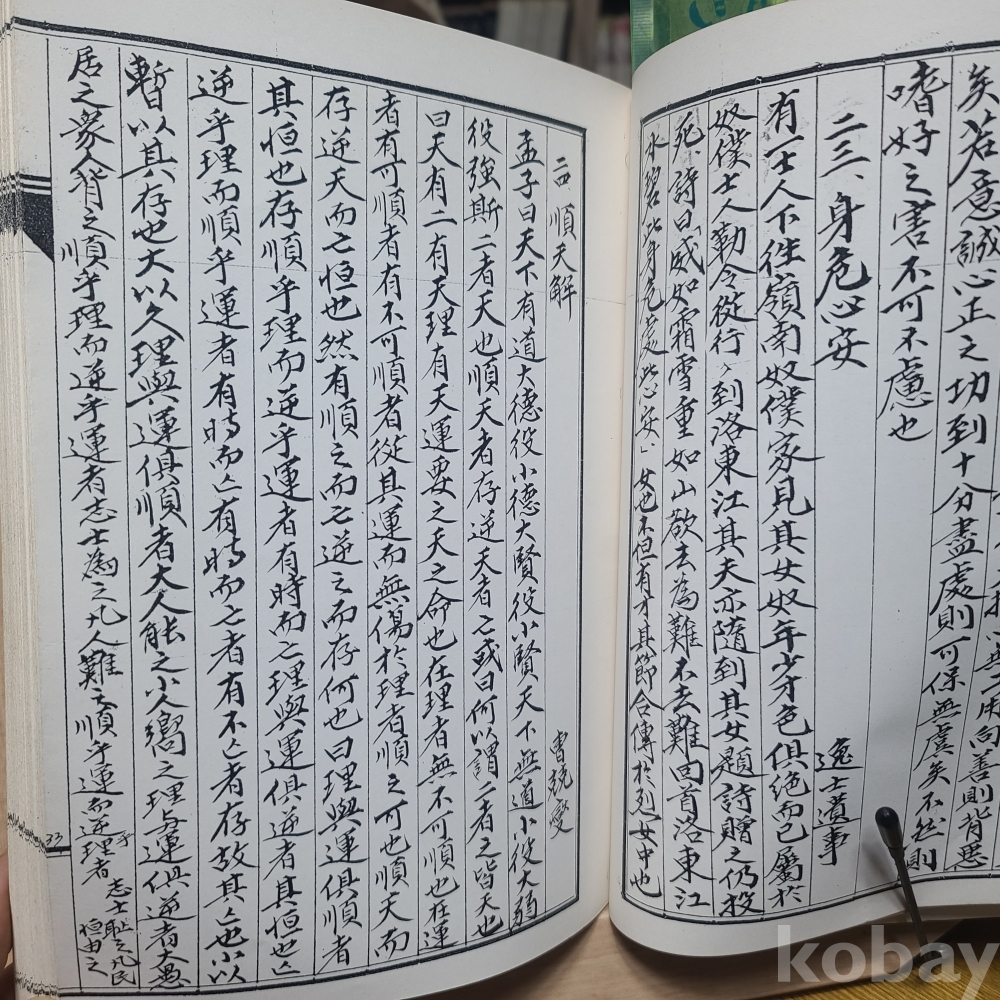 矣若意誠心正之功到十分盡處則可保無虞矣不然則
嗜好之害不可不慮也
二三、身危心安 逸士遺事
有一士人下往嶺南奴僕家見其女奴年少才色俱絶而已屬於
奴僕士人勒令從行到洛東江其夫亦隨到其女題詩贈之仍投
死詩曰「威如霜雪重如山欲去為難不去難回首洛東江
水碧此身危處此心安」女也不但有才其節合傳於列女中也
二四 順天解 曹兢燮
孟子曰天下有道大德役小德大賢役小賢天下無道小役大弱
役強斯二者天也順天者存逆天者亡或曰何以謂二者之皆天也
曰天有二有天理有天運要之天之命也在理者無不可順也在運
者有可順者有不可順者從其運而無傷於理者順之可也順天而
存逆天而亡恒也然有順之而亡逆之而存何也曰理與運俱順者
其恒也存順乎理而逆乎運者有時而亡理與運俱逆者其恒也亡
逆乎理而順乎運者有時而亡有時而亡者有不亡者存故其亡也小以
暫以其存也大以久理與運俱順者大人能之小人嚮之理与運俱逆者大愚
居之衆人背之順乎理而逆乎運者志士為之凡人難之順乎運而逆乎理者 志士恥之凡民恒由之
33
kobay